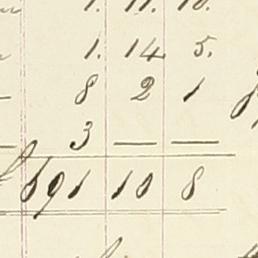 1. 11. 10.
1. 14. 5.
8 2 1
3 — —
£691 10 8